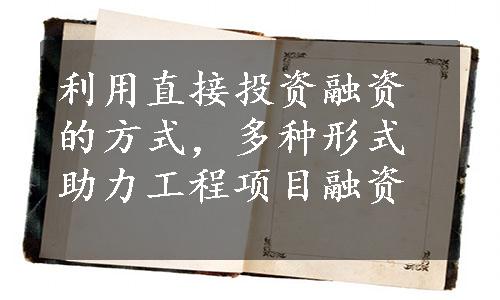 利用直接投资融资
的方式，多种形式
助力工程项目融资